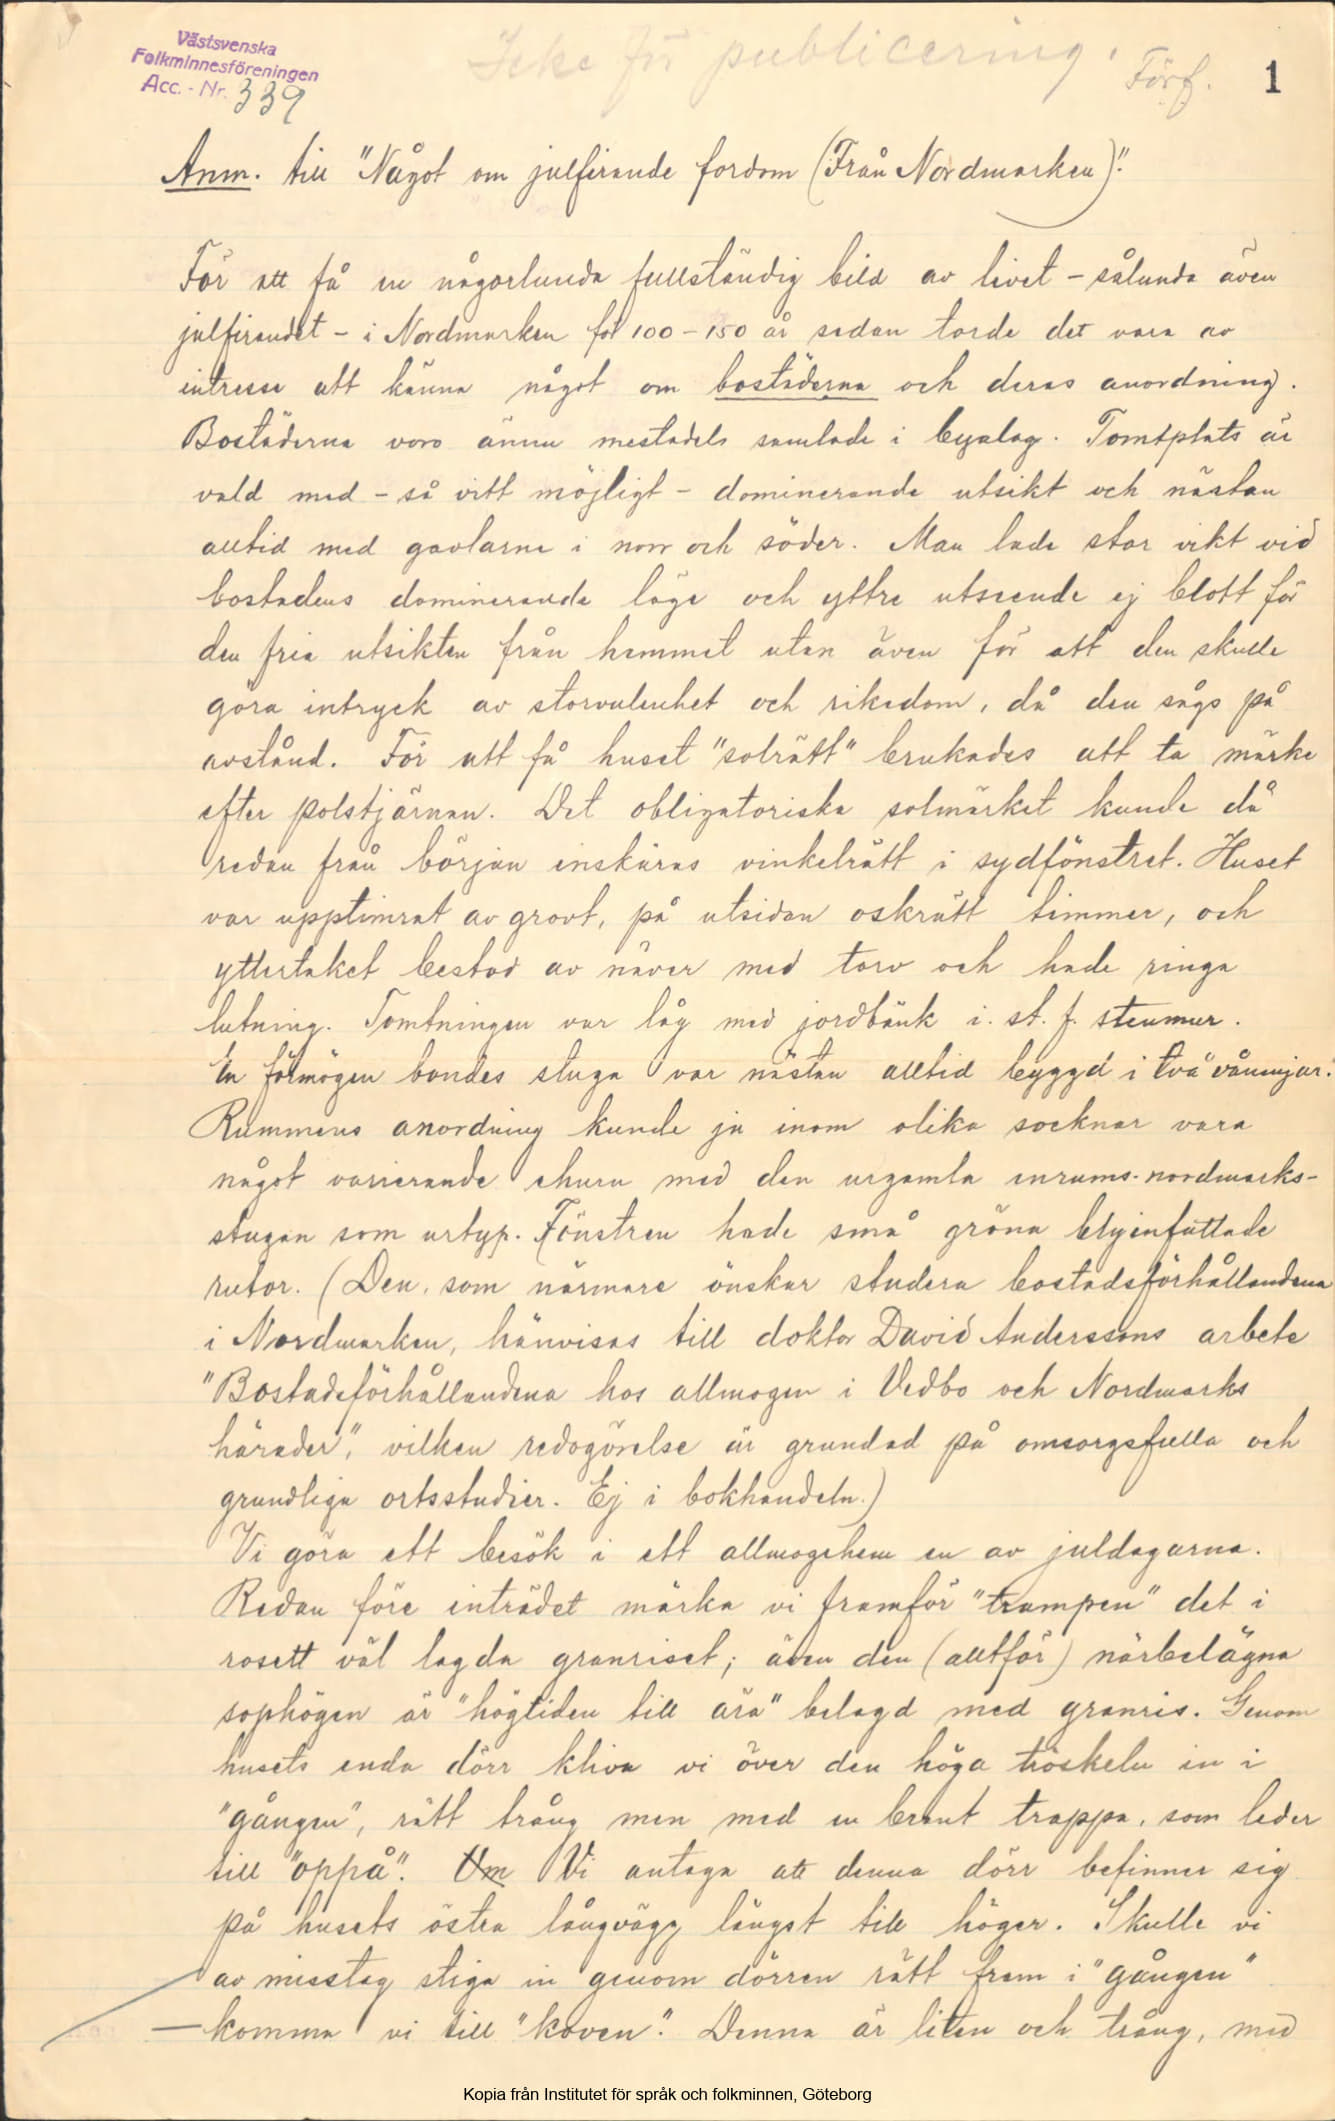 Västsvenska
Folkminnesföreningen
Acc. - Nr. 339
Icke för publicering.
Förf.
1
Anm. till "Något om julfirande fordom (Från Nordmarken)."
För att få en någorlunda fullständig bild av livet – sålunda även
julfirandet – i Nordmarken för 100 – 150 år sedan torde det vara av
intresse att känna något om bostäderna och deras anordning.
Bostäderna voro ännu mestadels samlade i byalag. Tomtplats är
vald med – så vitt möjligt – dominerande utsikt och nästan
alltid med gavlarne i norr och söder. Man lade stor vikt vid
bostadens dominerande läge och yttre utseende ej blott för
den fria utsikten från hemmet utan även för att den skulle
göra intryck av storvulenhet och rikedom, då den sågs på
avstånd. För att få huset "solrätt" brukades att ta märke
efter polstjärnan. Det obligatoriska solmärket kunde då
redan från början inskäras vinkelrätt i sydfönstret. Huset
var upptimrat av grovt, på utsidan oskrätt timmer, och
yttertaket bestod av näver med torv och hade ringa
lutning. Tomtningen var låg med jordbänk i. st. f. stenmur.
En förmögen bondes stuga var nästan alltid byggd i två våningar.
Rummens anordning kunde ju inom olika socknar vara
något varierande ehuru med den urgamla enrums-nordmarks-
stugan som urtyp. Fönstren hade små gröna blyinfattade
rutor. (Den, som närmare önskar studera bostadsförhållandena
i Nordmarken, hänvisas till doktor David Anderssons arbete
"Bostadsförhållandena hos allmogen i Vedbo och Nordmarks
härader", vilken redogörelse är grundad på omsorgsfulla och
grundliga ortsstudier. Ej i bokhandeln.)
Vi göra ett besök i ett allmogehem en av juldagarna.
Redan före inträdet märka vi framför "trampen" det i
rosett väl lagda granriset; även den (alltför) närbelägna
sophögen är "högtiden till ära" belagd med granris. Genom
husets enda dörr kliva vi över den höga tröskeln in i
"gången", rätt trång men med en brant trappa, som leder
till "oppå". Om Vi antaga att denna dörr befinner sig
på husets östra långvägg längst till höger. Skulle vi
av misstag stiga in genom dörren rätt fram i "gången"
– komma vi till "koven". Denna är liten och trång, med
Kopia från Institutet för språk och folkminnen, Göteborg